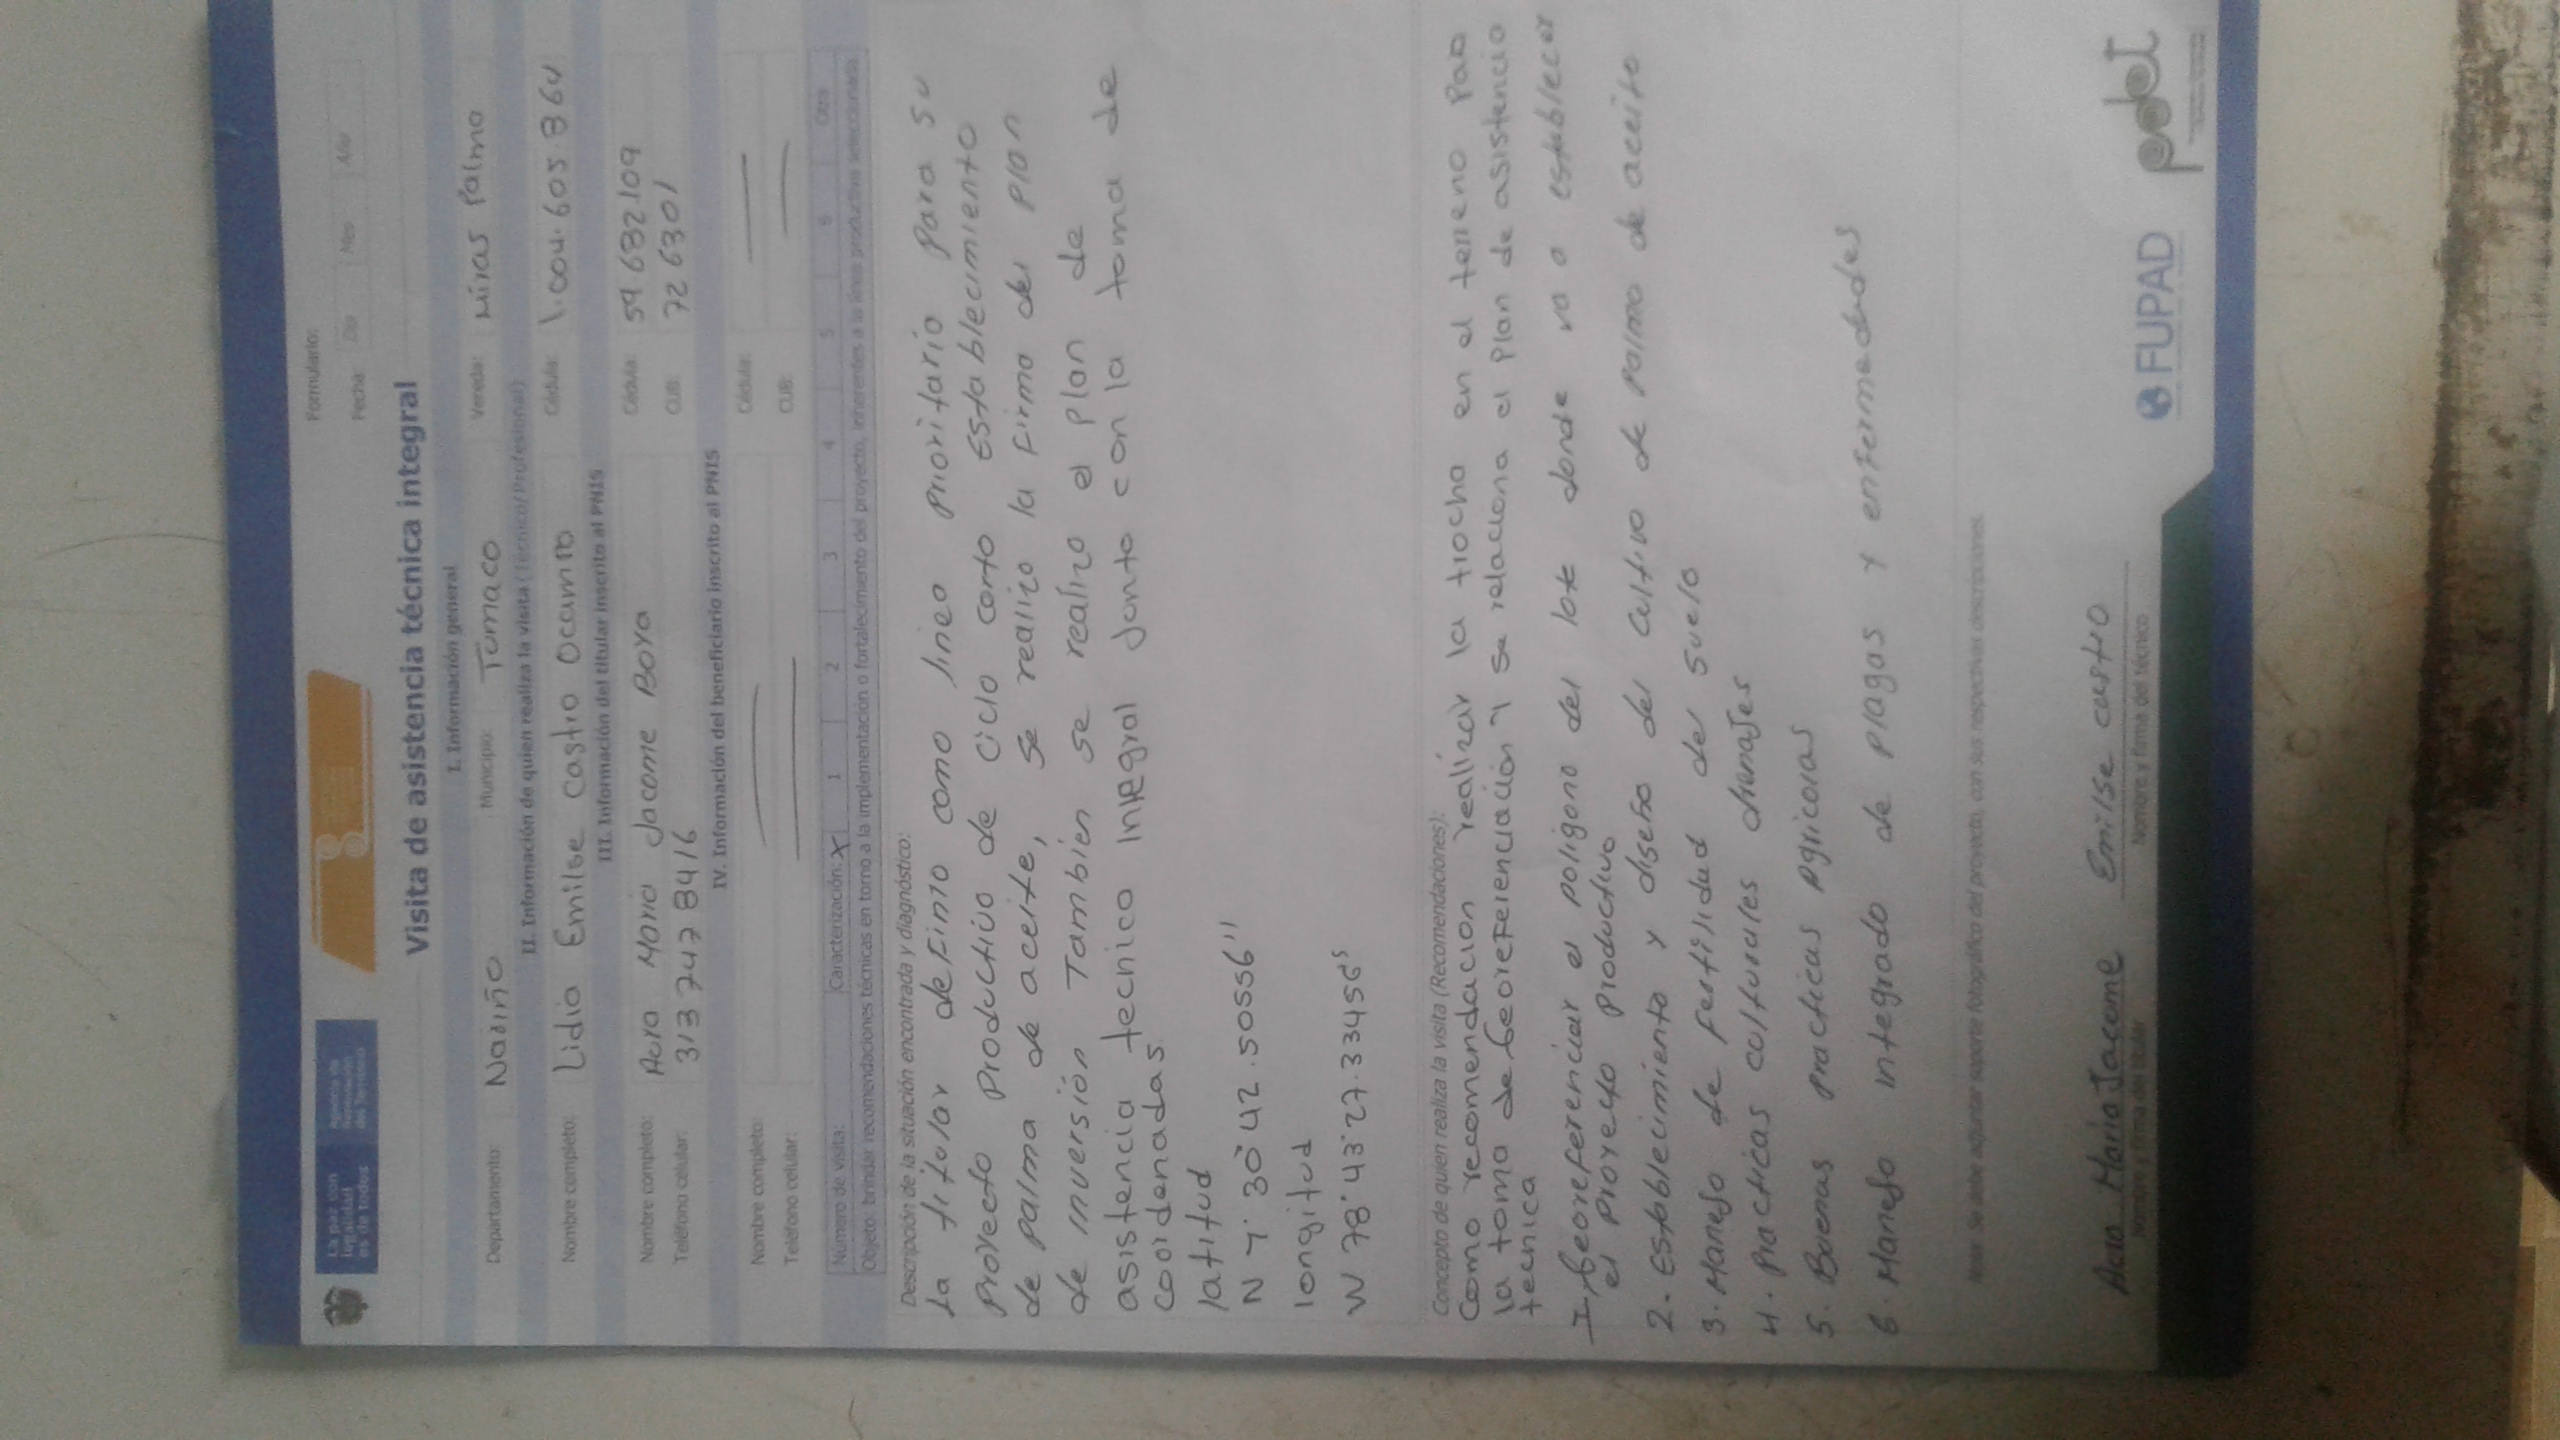 La paz con
legalidad
es de todos
Agencia de
Renovación
del Territorio
Formulario:
Fecha: Día Mes Año
Visita de asistencia técnica integral
I. Información general
Departamento: Nariño Municipio: Tumaco Vereda: Miras Palmo
II. Información de quien realiza la visita (Técnico/Profesional)
Nombre completo: Lidia Emilse Castro Ocampo Cédula: 1.004.605.864
III. Información del titular inscrito al PNIS
Nombre completo: Aura Maria Jacome Boya Cédula: 59682109
Teléfono celular: 3137478416 CUB: 726301
IV. Información del beneficiario inscrito al PNIS
Nombre completo: — Cédula: —
Teléfono celular: — CUB: —
Número de visita: Caracterización: X 1 2 3 4 5 6 Otra
Objeto: brindar recomendaciones técnicas en torno a la implementación o fortalecimiento del proyecto, inherentes a la línea productiva seleccionada.
Descripción de la situación encontrada y diagnóstico:
La titular definio como linea prioritario para su
proyecto productivo de ciclo corto establecimiento
de palma de aceite, se realizo la firma del plan
de inversión Tambien se realizo el plan de
asistencia tecnico integral Jonto con la toma de
coordenadas.
latitud
longitud
Concepto de quien realiza la visita (Recomendaciones):
Como recomendacion realizar la trocha en el terreno Para
la toma de Georeferenciación y se relaciona el plan de asistencia
tecnica
1- Georeferenciar el poligono del lote donde va a establecer
el proyecto productivo
2. Establecimiento y diseño del cultivo de palma de aceite
3. Manejo de fertilidad del suelo
4. Practicas culturales drenajes
5. Buenas practicas Agricolas
6. Manejo integrado de plagas y enfermedades
Nota: Se debe adjuntar soporte fotográfico del proyecto, con sus respectivas descripciones.
Aura Maria Jacome Emilse castro
Nombre y firma del titular Nombre y firma del técnico
FUPAD pdet